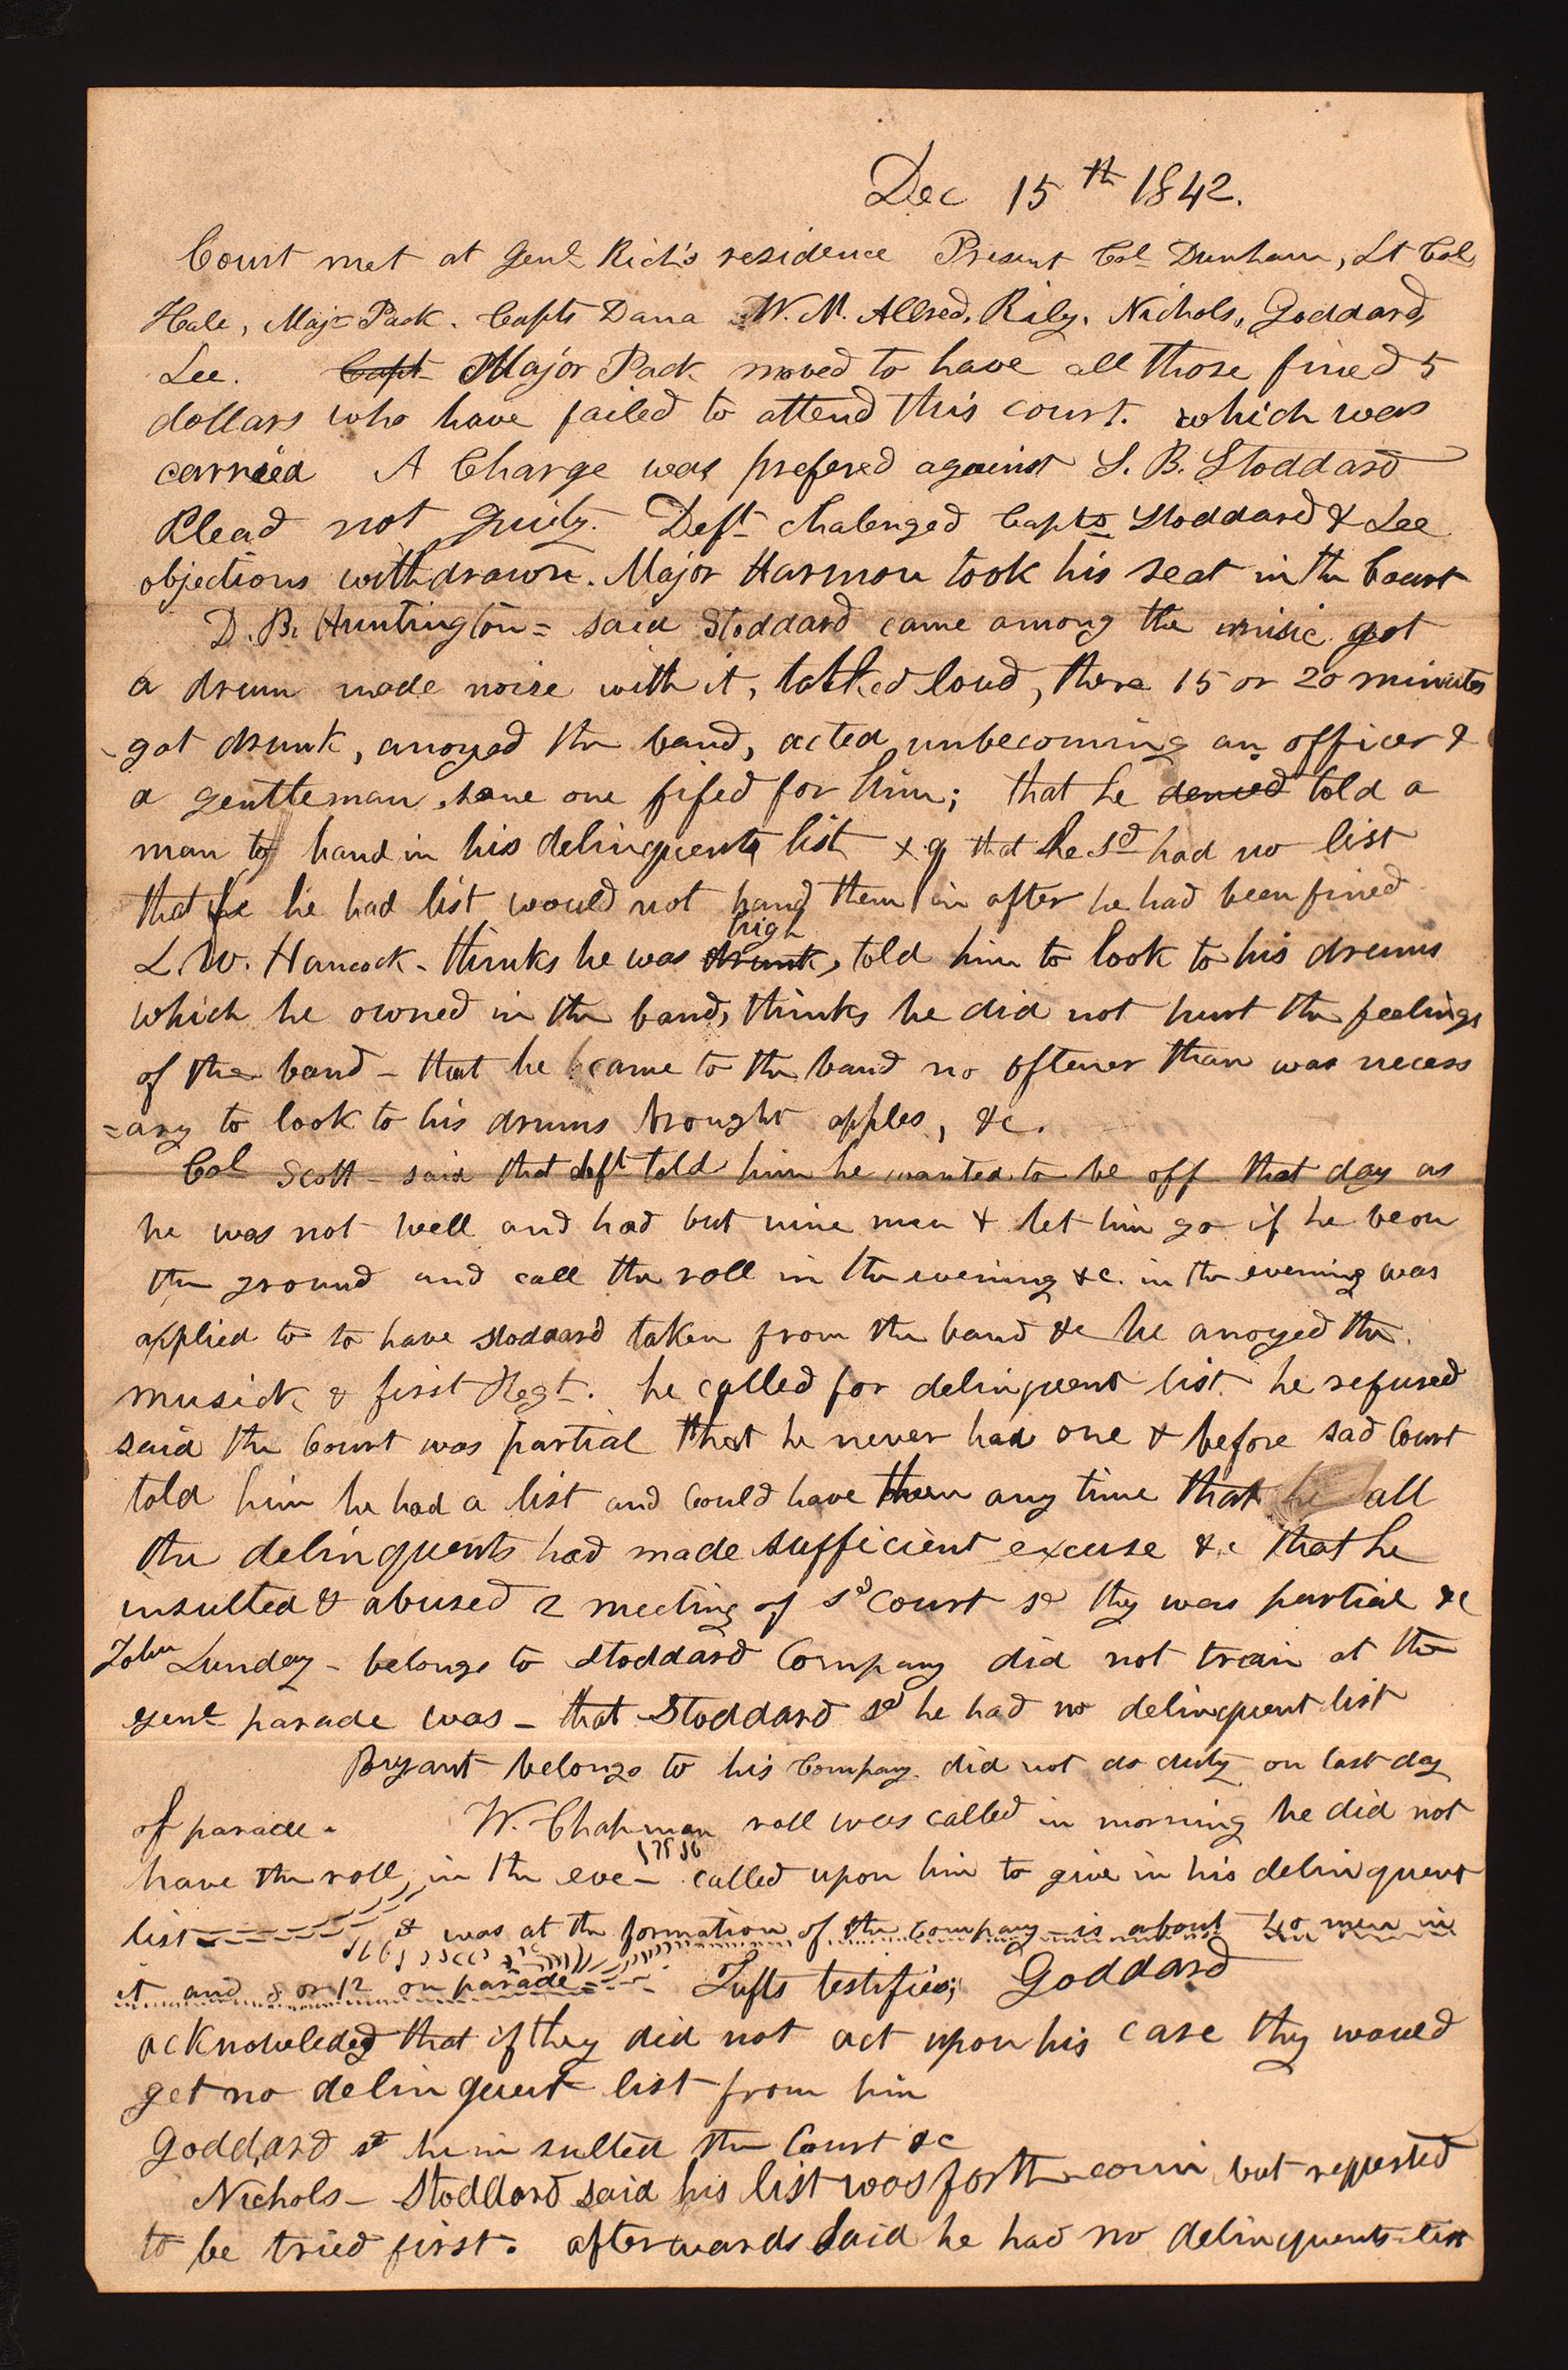 Dec 15th 1842.
Court met at Genl Rich's residence Present Col Dunham, Lt Col
Hale, Majr Pack. Capts Dana W. M. Allred, Rily. Nichols, Goddard,
Lee. Capt Major Pack moved to have all those fined 5
dollars who have failed to attend this court. which was
carried A Charge was prefered against S. B. Stoddard
Plead not guilty. Deft chalenged Capts Stoddard & Lee
objections withdrawn. Major Harmon took his seat in the Court
D. B. Huntington = said Stoddard came among the music got
a drum made noise with it, talked loud, there 15 or 20 minutes
got drunk, anoyed the band, acted unbecoming an officer &
a gentleman some one fifed for him; that he denied told a
man to hand in his delinquents list & that he sd had no list
that he he had list would not hand them in after he had been fined
high
L. W. Hancock - thinks he was drunk, told him to look to his drums
which he owned in the band, thinks he did not hurt the feelings
of the band - that he came to the band no oftener than was necess
=ary to look to his drums brought apples, &c.
Col Scott - said that deft told him he wanted to be off that day as
he was not well and had but nine men & let him go if he be on
the ground and call the roll in the evening &c. in the evening was
applied to to have stoddard taken from the band &c he anoyed the
musick & first Regt. he called for delinquent list he refused
said the Court was partial that he never had one & before sad Court
told him he had a list and could have them any time that he all
the delinquents had made sufficient excuse &c that he
insulted & abused 2 meeting of sd Court sd they was partial &c
John Lunday - belongs to Stoddard Company did not train at the
genl parade was - that Stoddard sd he had no delinquent list
Bryant belongs to his Company. did not do duty on last day
of parade. W. Chapman roll was called in morning he did not
have the roll, in the eve - called upon him to give in his delinquent
list & was at the formation of the company - is about 40 men in
it and 8 or 12 on parade Tufts testifies; Goddard
acknowledged that if they did not act upon his case they would
get no delinquent list from him
Goddard sd he insulted the Court &c
Nichols - Stoddard said his list was forth comin but requested
to be tried first. afterwards said he had no delinquents list